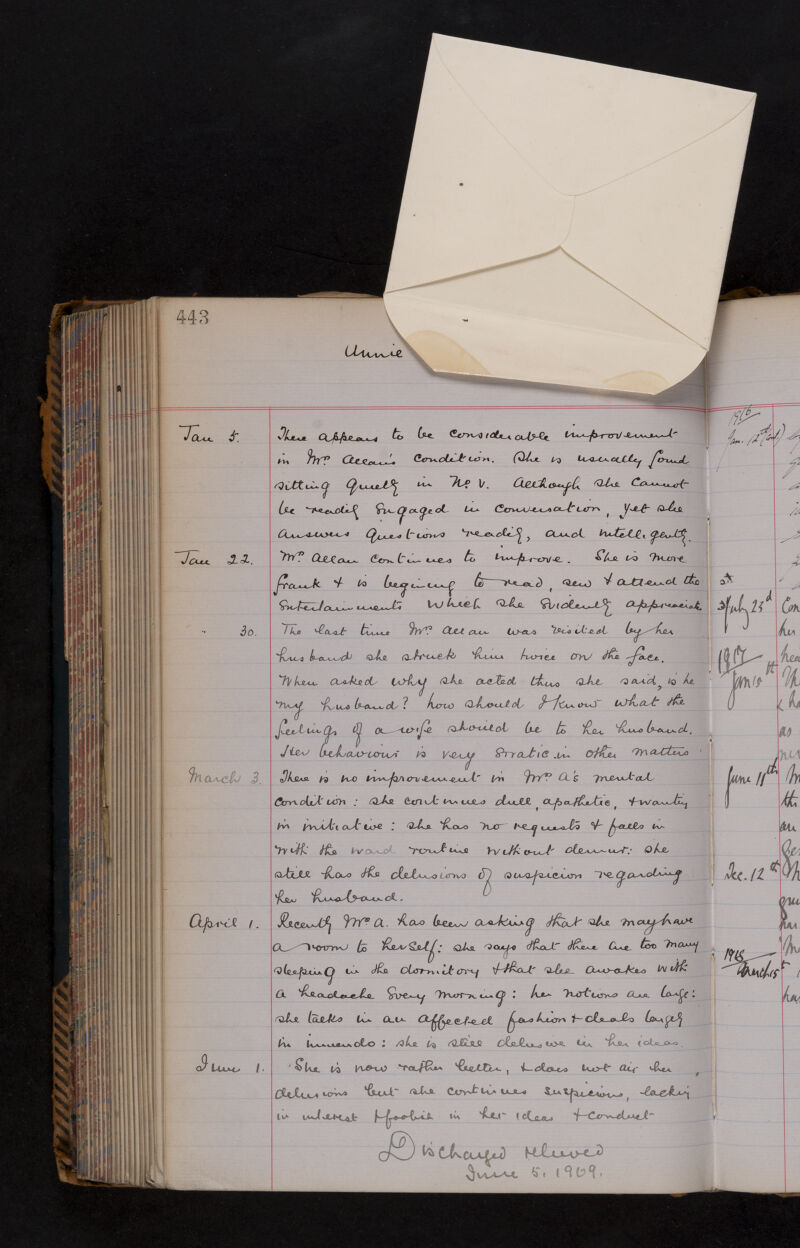 443
Annie
Jan 5. There appears to be considerable improvement
in Mrs Allan's condition. She is usually found
sitting quietly in No V. Although she cannot
be readily engaged in conversation, yet she
answers questions readily, and intelligently.
Jan 22. Mrs Allan continues to improve. She is more
frank & is begining to read, sew & attend the
Entertainments which she evidently appreciates
" 30. The last time Mrs Allan was visited by her
husband she struck him twice on the face.
When asked why she acted thus she said, is he
my husband? how should I know what the
feelings of a wife should be to her husband.
Her behaviour is very erratic in other matters
March 3. There is no improvement in Mrs A's mental
condition: she continues dull, apathetic, & wanting
in initiative: she has no requests & falls in
with the ward routine without demur: she
still has the delusions of suspicion regarding
her husband.
April 1. Recently Mrs A. has been asking that she may have
a room to herself: she says that there are too many
sleeping in the dormitory & that she awakes with
a headache every morning: her notions are large:
she talks in an affected fashion & deals largely
in inuendo: she is still delusive in her ideas.
June 1. She is now rather better, & does not air her
delusions but she continues suspicious, lacking
in interest & foolish in her ideas & conduct
Discharged relieved
June 5. 1909.
1916
Jan. 12th
July 23d
Con
her
1917
Jan 15th
June 11th
Dec. 12th
1918
March 15th